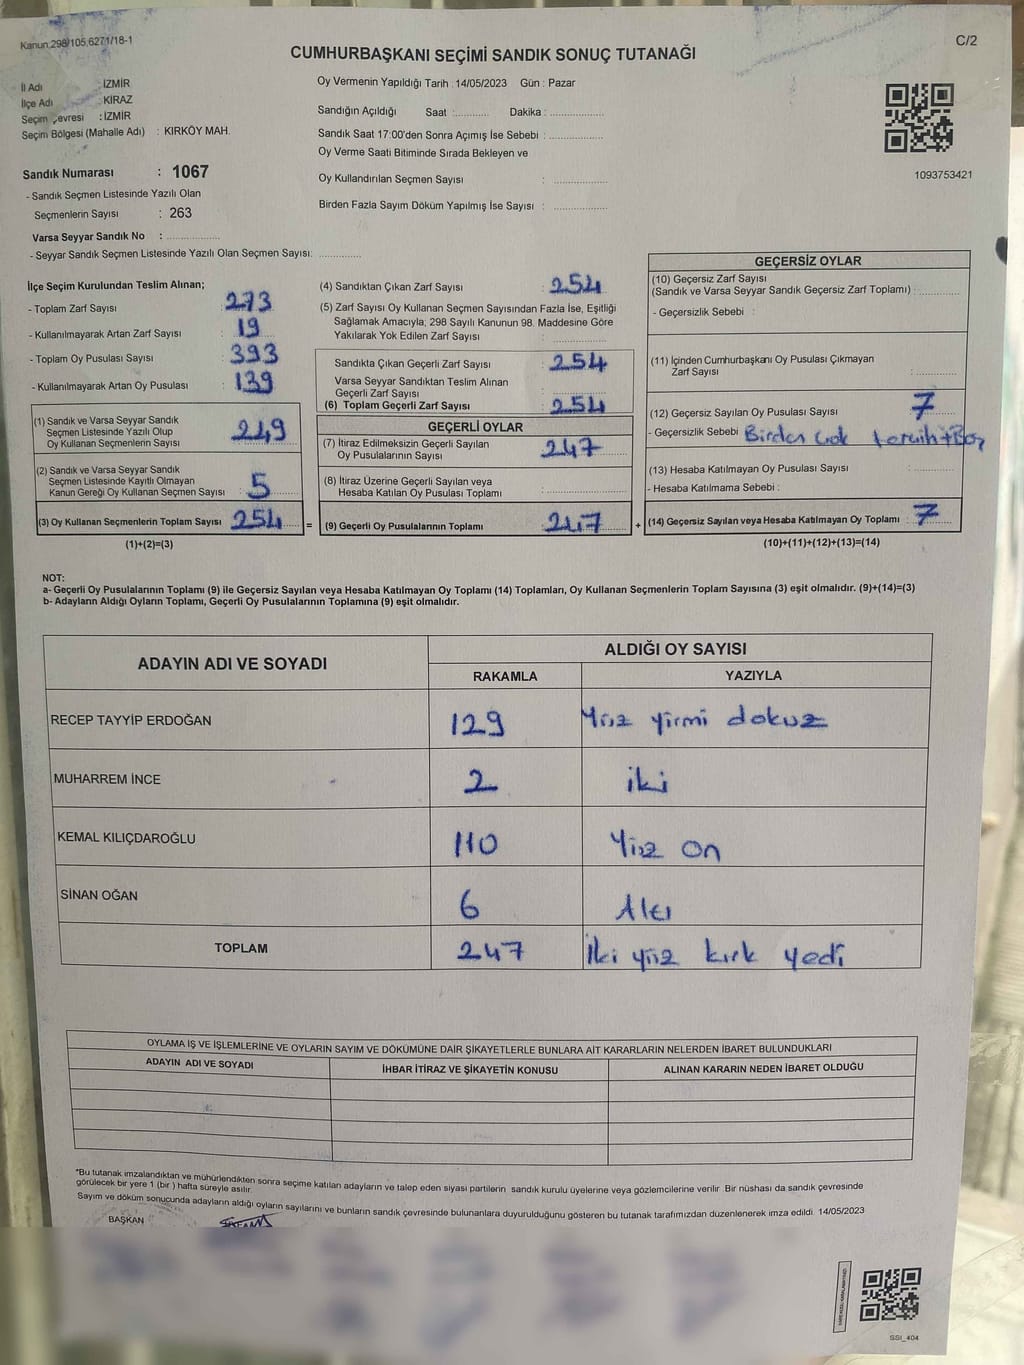 Kanun.298/105,6271/18-1
C/2
CUMHURBAŞKANI SEÇİMİ SANDIK SONUÇ TUTANAĞI
İl Adı : İZMİR
İlçe Adı : KİRAZ
Seçim Çevresi : İZMİR
Seçim Bölgesi (Mahalle Adı) : KIRKÖY MAH.
Sandık Numarası : 1067
- Sandık Seçmen Listesinde Yazılı Olan
Seçmenlerin Sayısı : 263
Varsa Seyyar Sandık No : ..................
- Seyyar Sandık Seçmen Listesinde Yazılı Olan Seçmen Sayısı: ..............
Oy Vermenin Yapıldığı Tarih : 14/05/2023 Gün : Pazar
Sandığın Açıldığı Saat :........... Dakika : ..................
Sandık Saat 17:00'den Sonra Açımış İse Sebebi : ..................
Oy Verme Saati Bitiminde Sırada Bekleyen ve
Oy Kullandırılan Seçmen Sayısı : ..................
Birden Fazla Sayım Döküm Yapılmış İse Sayısı : ..................
1093753421
İlçe Seçim Kurulundan Teslim Alınan;
- Toplam Zarf Sayısı : 273
- Kullanılmayarak Artan Zarf Sayısı : 19
- Toplam Oy Pusulası Sayısı : 393
- Kullanılmayarak Artan Oy Pusulası : 139
(1) Sandık ve Varsa Seyyar Sandık
Seçmen Listesinde Yazılı Olup
Oy Kullanan Seçmenlerin Sayısı : 249
(2) Sandık ve Varsa Seyyar Sandık
Seçmen Listesinde Kayıtlı Olmayan
Kanun Gereği Oy Kullanan Seçmen Sayısı : 5
(3) Oy Kullanan Seçmenlerin Toplam Sayısı : 254 =
(1)+(2)=(3)
(4) Sandıktan Çıkan Zarf Sayısı : 254
(5) Zarf Sayısı Oy Kullanan Seçmen Sayısından Fazla İse, Eşitliği
Sağlamak Amacıyla; 298 Sayılı Kanunun 98. Maddesine Göre
Yakılarak Yok Edilen Zarf Sayısı : ..................
Sandıkta Çıkan Geçerli Zarf Sayısı : 254
Varsa Seyyar Sandıktan Teslim Alınan
Geçerli Zarf Sayısı : ..................
(6) Toplam Geçerli Zarf Sayısı : 254
GEÇERLİ OYLAR
(7) İtiraz Edilmeksizin Geçerli Sayılan
Oy Pusulalarının Sayısı : 247
(8) İtiraz Üzerine Geçerli Sayılan veya
Hesaba Katılan Oy Pusulası Toplamı : ..................
(9) Geçerli Oy Pusulalarının Toplamı : 247 +
GEÇERSİZ OYLAR
(10) Geçersiz Zarf Sayısı
(Sandık ve Varsa Seyyar Sandık Geçersiz Zarf Toplamı) : ............
- Geçersizlik Sebebi :
(11) İçinden Cumhurbaşkanı Oy Pusulası Çıkmayan
Zarf Sayısı : ............
(12) Geçersiz Sayılan Oy Pusulası Sayısı : 7
- Geçersizlik Sebebi : Birden çok tercih+Boş
(13) Hesaba Katılmayan Oy Pusulası Sayısı : ............
- Hesaba Katılmama Sebebi :
(14) Geçersiz Sayılan veya Hesaba Katılmayan Oy Toplamı : 7
(10)+(11)+(12)+(13)=(14)
NOT:
a- Geçerli Oy Pusulalarının Toplamı (9) ile Geçersiz Sayılan veya Hesaba Katılmayan Oy Toplamı (14) Toplamları, Oy Kullanan Seçmenlerin Toplam Sayısına (3) eşit olmalıdır. (9)+(14)=(3)
b- Adayların Aldığı Oyların Toplamı, Geçerli Oy Pusulalarının Toplamına (9) eşit olmalıdır.
ADAYIN ADI VE SOYADI
ALDIĞI OY SAYISI
RAKAMLA YAZIYLA
RECEP TAYYİP ERDOĞAN 129 Yüz yirmi dokuz
MUHARREM İNCE 2 iki
KEMAL KILIÇDAROĞLU 110 Yüz on
SİNAN OĞAN 6 Altı
TOPLAM 247 İki yüz kırk yedi
OYLAMA İŞ VE İŞLEMLERİNE VE OYLARIN SAYIM VE DÖKÜMÜNE DAİR ŞİKAYETLERLE BUNLARA AİT KARARLARIN NELERDEN İBARET BULUNDUKLARI
ADAYIN ADI VE SOYADI İHBAR İTİRAZ VE ŞİKAYETİN KONUSU ALINAN KARARIN NEDEN İBARET OLDUĞU
*Bu tutanak imzalandıktan ve mühürlendikten sonra seçime katılan adayların ve talep eden siyasi partilerin sandık kurulu üyelerine veya gözlemcilerine verilir. Bir nüshası da sandık çevresinde
görülecek bir yere 1 (bir) hafta süreyle asılır.
Sayım ve döküm sonucunda adayların aldığı oyların sayılarını ve bunların sandık çevresinde bulunanlara duyurulduğunu gösteren bu tutanak tarafımızdan düzenlenerek imza edildi. 14/05/2023
BAŞKAN
SSI_404